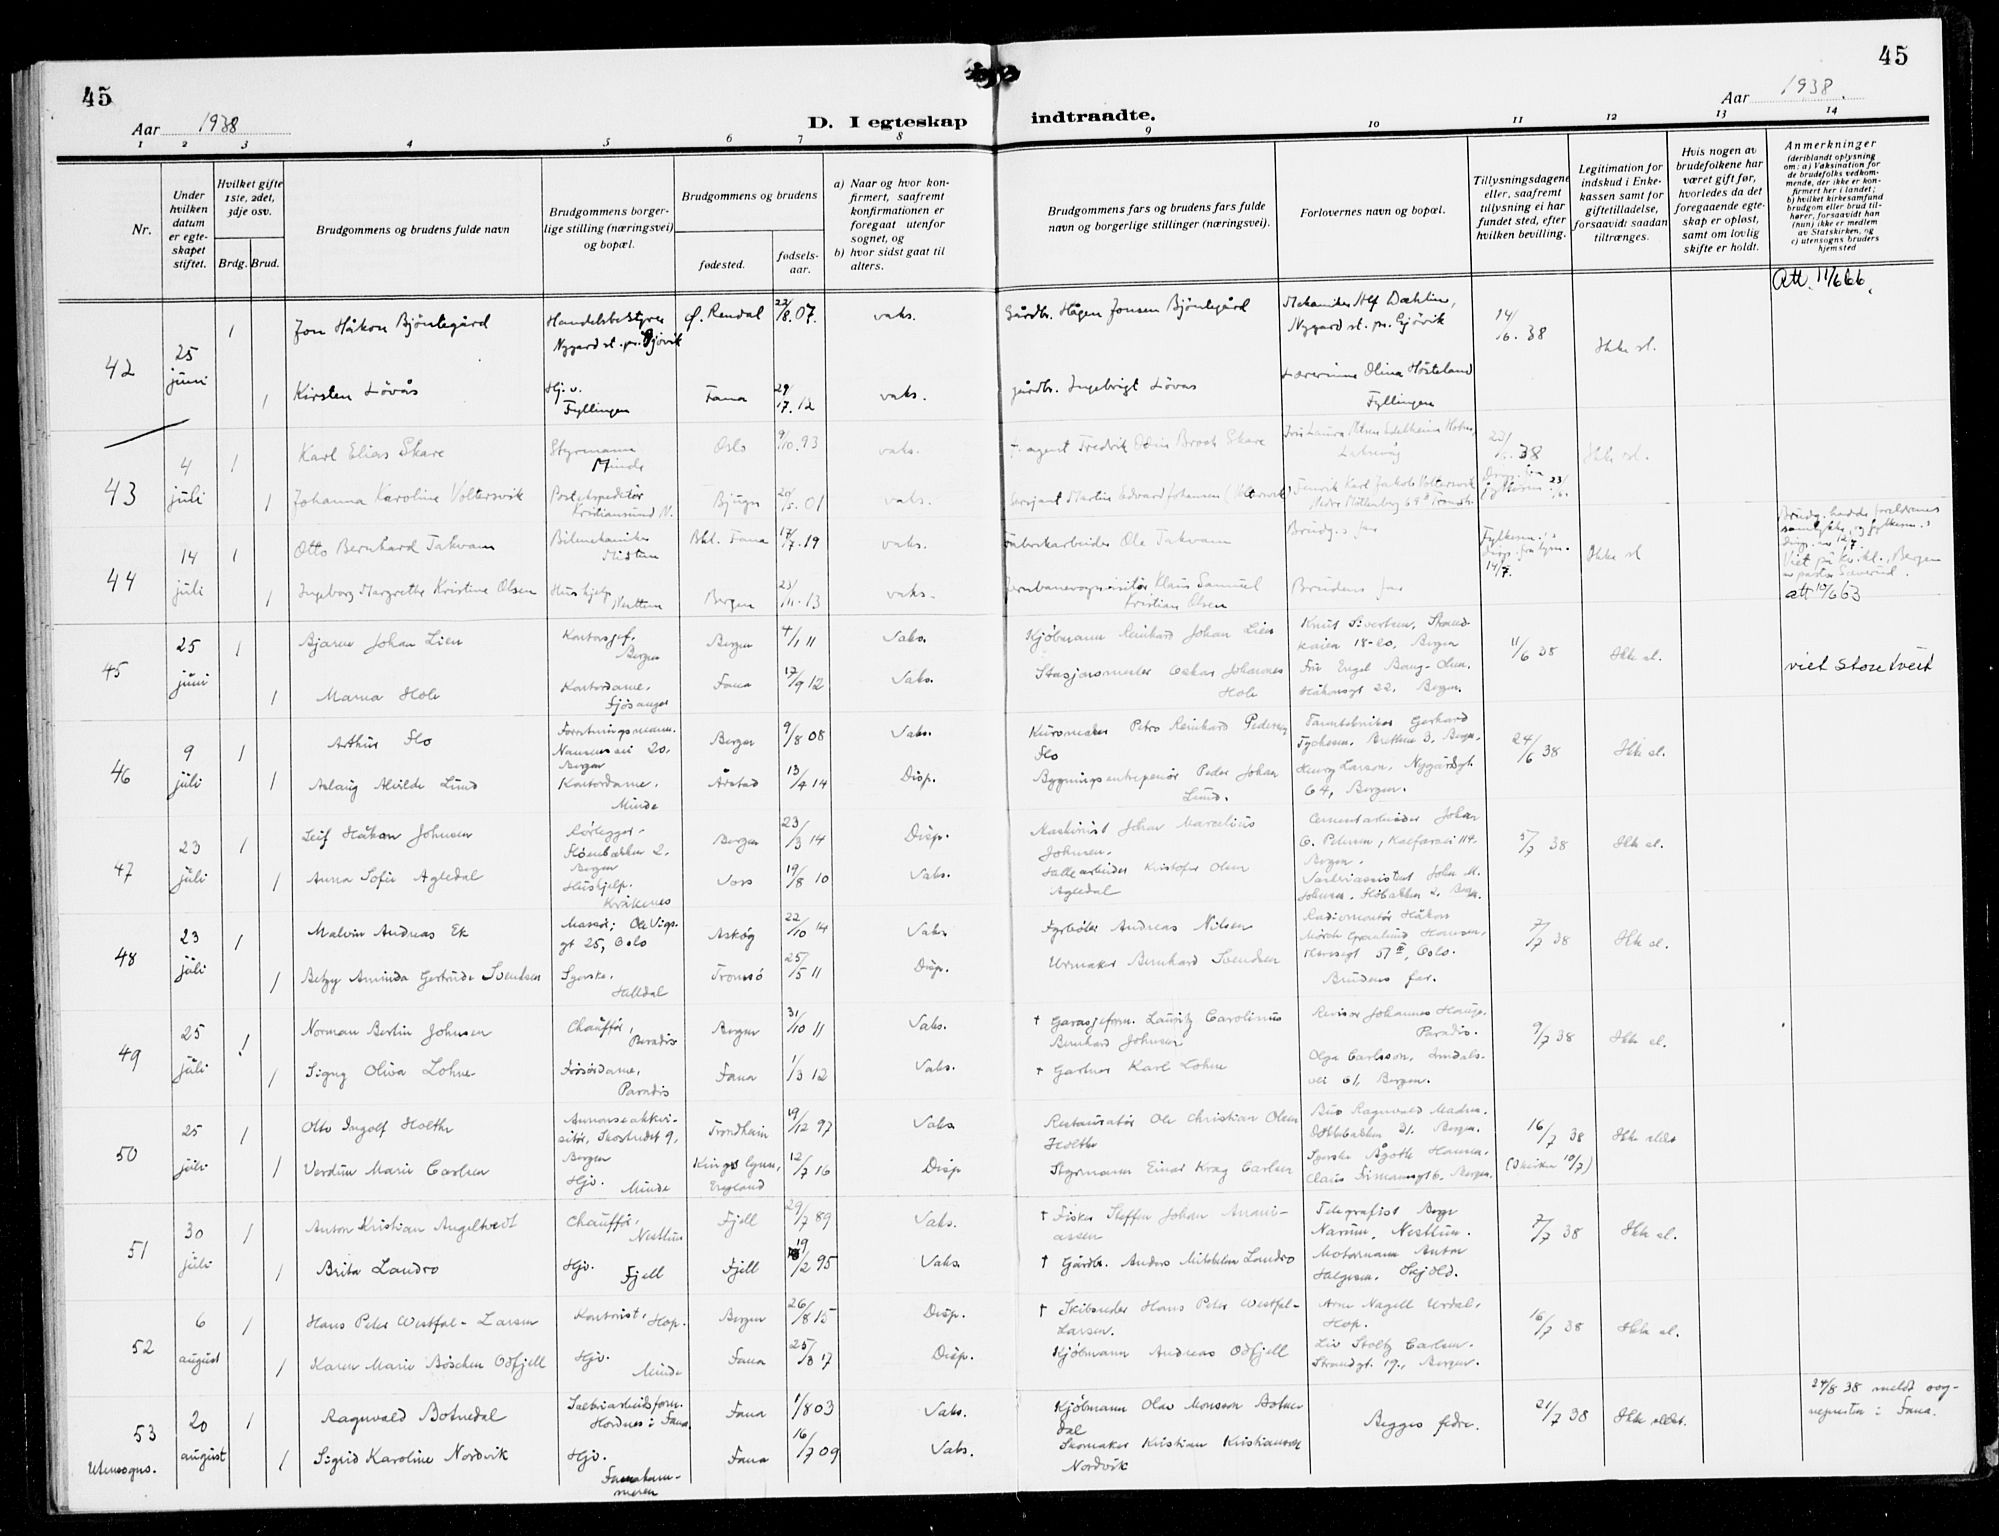 45
45
Aar 1938
D. I egteskap
indtraadte.
Aar 1938.
1 2 3 4 5 6 7 8 9 10 11 12 13 14
Nr.
Under hvilken datum er egteskapet stiftet.
Hvilket gifte 1ste, 2det, 3dje osv.
Brdg. Brud.
Brudgommens og brudens fulde navn
Brudgommens borgerlige stilling (næringsvei) og bopæl.
Brudgommens og brudens
fødested.
fødselsaar.
a) Naar og hvor konfirmert, saafremt konfirmationen er foregaat utenfor sognet, og
b) hvor sidst gaat til alters.
Brudgommens fars og brudens fars fulde navn og borgerlige stillinger (næringsvei).
Forlovernes navn og bopæl.
Tillysningsdagene eller, saafremt tillysning ei har fundet sted, efter hvilken bevilling.
Legitimation for indskud i Enkekassen samt for giftetilladelse, forsaavidt saadan tiltrænges.
Hvis nogen av brudefolkene har været gift før, hvorledes da det foregaaende egteskap er opløst, samt om lovlig skifte er holdt.
Anmerkninger
(deriblandt oplysning om: a) Vaksination for de brudefolks vedkommende, der ikke er konfirmert her i landet;
b) hvilket kirkesamfund brudgom eller brud tilhører, forsaavidt han (hun) ikke er medlem av Statskirken, og
c) utensogns bruders hjemsted
42 25 juni 1 Jon Håkon Bjøntegård Handelsbestyrer Nygard st. pr. Gjøvik Ø. Rendal 22/8.07. vaks. Gårdbr. Hågen Jonsen Bjøntegård Mekaniker Alf Dæhlin, Nygard st. pr. Gjøvik 14/6.38 Ikke sl. Att. 11/6 66.
1 Kirsten Løvås Hj.v. Fyllingen Fana 12 vaks. gårdbr. Ingebrigt Løvås Lærerinne Olina Høsteland Fyllingen
43 4 juli 1 Karl Elias Skare Styrmann Minde Oslo 9/10.93 vaks. † agent Fredrik Odin Brock Skare 38 Ikke sl.
1 Johanna Karoline Voltersvik Postekspeditør Kristiansund N. Bjugn 20/5.01 vaks. Sersjant Martin Edvard Johansen (Voltersvik) Fenrik Karl Jakob Voltersvik
44 14 juli 1 Otto Bernhard Takvam Bilmekaniker Midttun Bkl. Fana 17/7.19 vaks. Fabrikarbeider Ole Takvam Brudg.s far Fylkesm.s 14/7. Ikke sl
1 Ingeborg Margrethe Kristine Olsen Hushjelp Nesttun Bergen 23/11.13 vaks. Klaus Samuel Kristian Olsen Brudens far att 10/6 63
45 25 juni 1 Bjarne Johan Lien Kontorsjef, Bergen Bergen 4/1 11 Vaks. Kjøbmann Reinhard Johan Lien Knut Sivertsen, Strandkaien 18-20, Bergen 11/6 38 Ikke sl. viet Storetveit
1 Maria Hole Kontordame, Fjøsanger Fana 17/9 12 Vaks. Stasjonsmester Oskar Johannes Hole Fru Engel Bang-Olsen, Håkonsgt 22, Bergen.
46 9 juli 1 Arthur Flo Forretningsmann. Nansens vei 20, Bergen Bergen 9/8 08 Vaks. Petro Reinhard Pedersen Flo Gerhard Tychesen. Bergen. 24/6 38 Ikke sl.
1 Aslaug Alvilde Lund Kontordame. Minde Årstad 13/4 14 Disp. Bygningsentreprenør Peder Johan Lund. Henry Larsen, Nygårdsgt. 64, Bergen.
47 23 juli 1 Leif Håkon Johnsen Rørlegger. Bergen Bergen 23/3 14 Disp. Maskinist Johan Marcelius Johnsen. Cementarbeider Johan G. Petersen, Kalfarvei 114. Bergen. 5/7 38 Ikke sl.
1 Anna Sofie Agledal Hushjelp. Kråkenes Voss 19/8 10 Vaks. Hallearbeider Kristofer Olsen Agledal John M. Johnsen. Bergen.
48 23 juli 1 Malvin Andreas Ek Massør; Ole Vigsgt 25, Oslo Askøy 22/10 14 Vaks. Fyrbøter Andreas Nilsen Radiomontør Håkon Mørch Grønlund Hansen, 57 II, Oslo. 7/7 38 Ikke sl.
1 Betzy Aminda Gertrude Svendsen Syerske. Helldal Tromsø 25/5 11 Disp. Urmaker Bernhard Svendsen Brudens far.
49 25 juli 1 Norman Bertin Johnsen Chauffør, Paradis Bergen 31/10 11 Vaks. † Garasjeform. Lauritz Carolinus Bernhard Johnsen Revisor Johannes Hauge. Paradis. 9/7 38 Ikke sl.
1 Signy Oliva Lohne Frisørdame, Paradis Fana 1/3 12 Vaks. † Gartner Karl Lohne Olga Carlsson, vei 61, Bergen.
50 25 juli 1 Otto Ingolf Holthe Annonseakkvisitør, Skostredet 9, Bergen Trondheim 19/12 97 Vaks. Restauratør Ole Christian Olsen Holthe Ragnvald Madsen. 31. Bergen. 16/7 38 Ikke sldt
1 Verdun Marie Carlsen Hjv. Minde Kings Lynn, England 12/7 16 Disp Styrmann Einar Krag Carlsen Syerske Ågoth Hansen, Claus Frimannsgt 6. Bergen.
51 30 juli 1 Anton Kristian Angeltvedt Chauffør, Nesttun Fjell 29/7 89 Vaks. † Fisker Steffen Johan Ananiassen Telegrafist Berge Narum, Nesttun. 7/7 38 Ikke sl.
1 Brita Landro Hjv. Fjell Fjell 19/2 95 Vaks. † Gårdbr. Anders Mikkelsen Landro Motormann Anton Helgesen. Skjold.
52 6 august 1 Hans Peter Westfal-Larsen Kontorist, Hop. Bergen 26/8 15 Disp. † Skibsreder Hans Peter Westfal-Larsen. Arne Nagell Urdal, Hop. 16/7 38 Ikke sl.
1 Karen Marie Bøschen Odfjell Hjv. Minde Fana 25/3 17 Disp. Kjøbmann Andreas Odfjell Liv Stoltz Carlsen. Strandgt. 19., Bergen.
53 20 august 1 Ragnvald Botnedal Hordnes i Fana. Fana 1/8 03 Vaks. Kjøbmann Olav Monssen Botnedal Begges fedre. 21/7 38 Ikke sldt. 24/8 38 meldt sognepresten i Fana.
Utensogns. 1 Sigrid Karoline Nordvik Hjv. Fanahammeren Fana 16/7 09 Vaks. Skomaker Kristian Kristiansen Nordvik